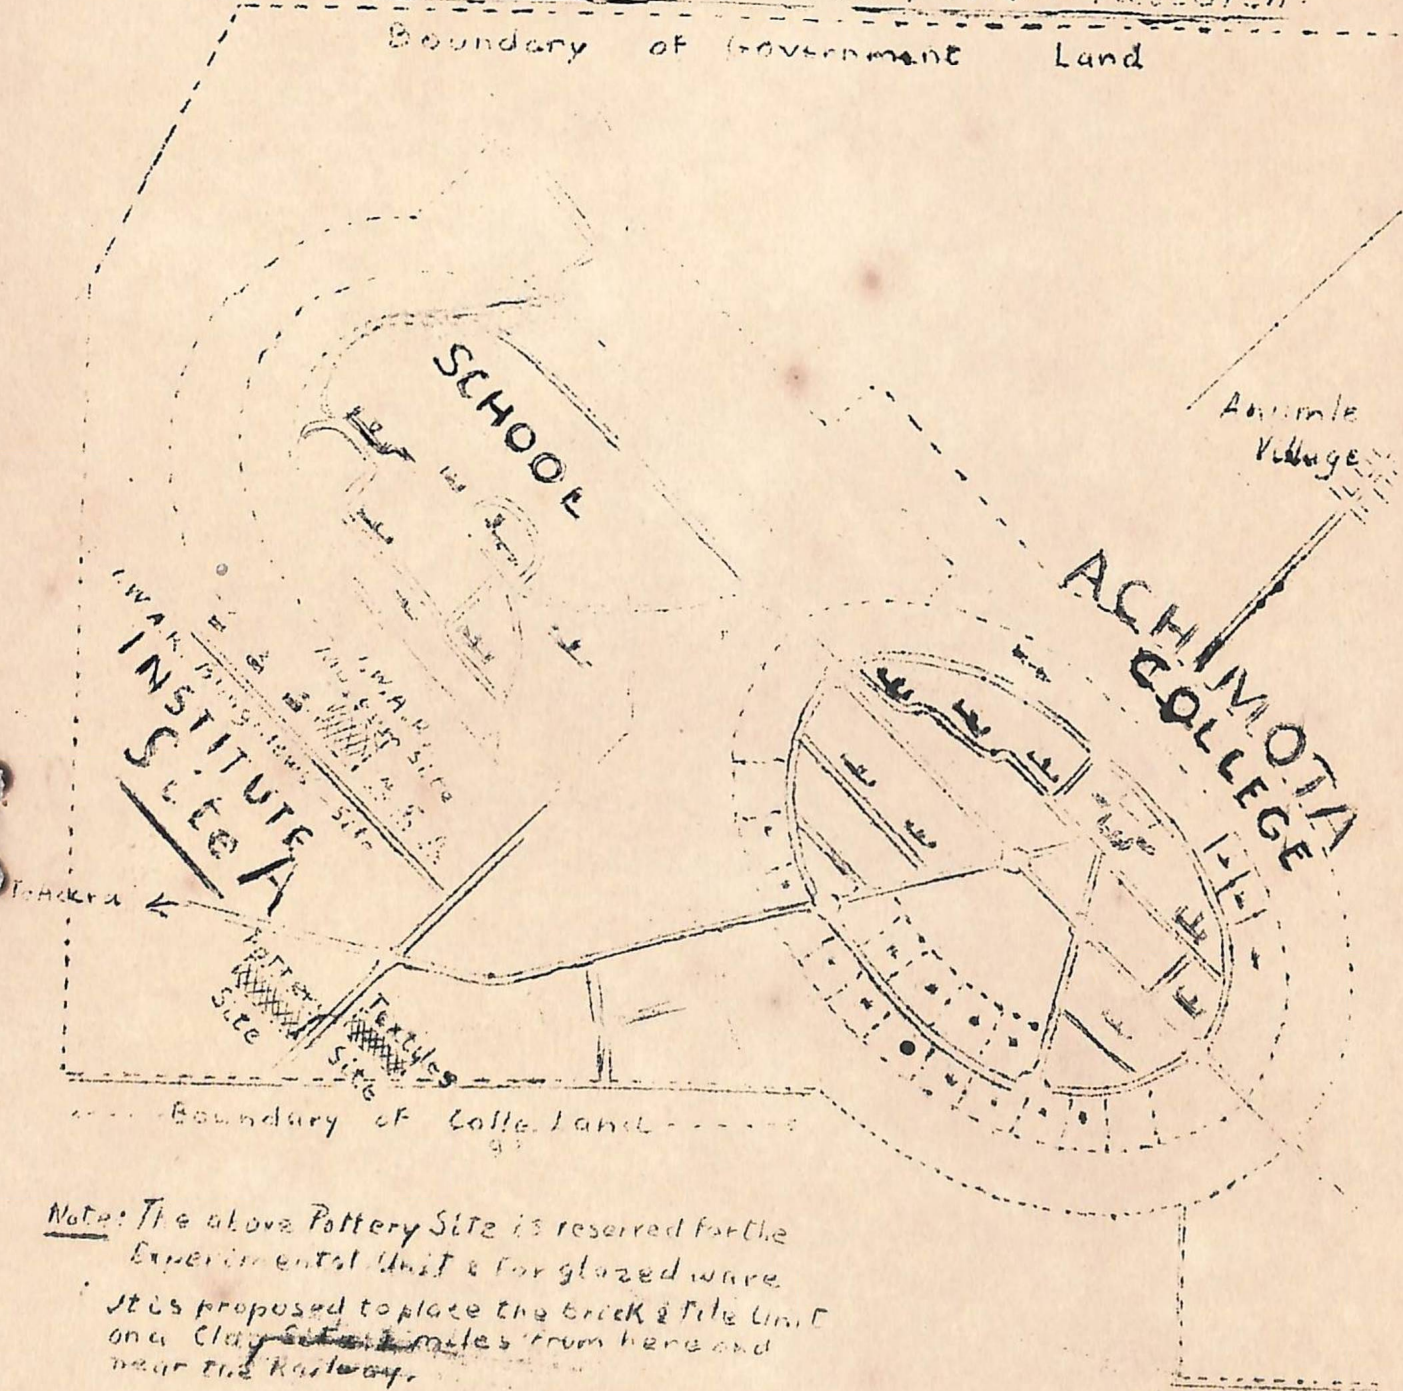 Boundary of Government Land
SCHOOL
Village
ACHIMOTA
COLLEGE
I.W.A.R. Bungalows Site
INSTITUTE
Site A
I.W.A.R.
Museum Site
To Accra
Pottery
Site
Textiles
Site
Boundary of College Land
Note: The above Pottery Site is reserved for the
Experimental Unit & for glazed ware
It is proposed to place the brick & Tile Unit
on a Clay miles from here and
near the Railway.